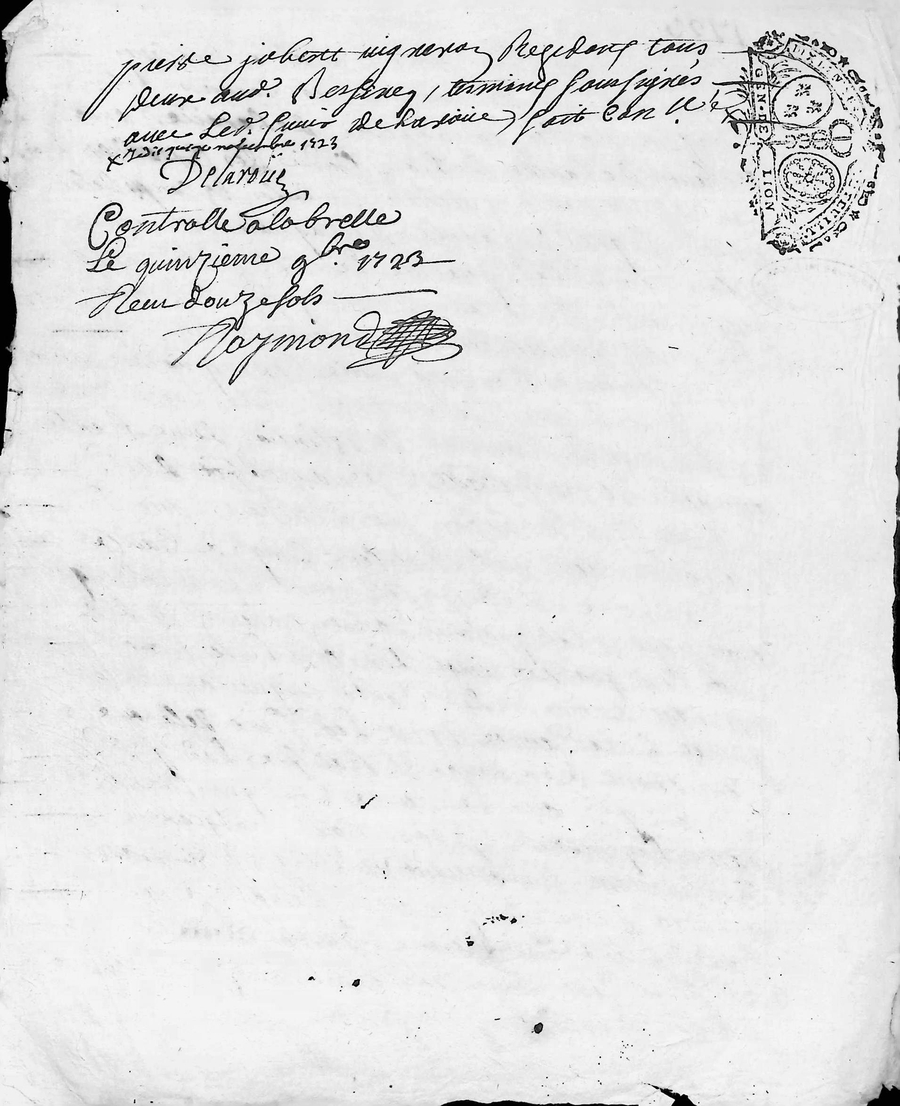 pierre jobert vigneron Residans tous
deux aud. Bessenay, temoins soussignés
avec Led. Sieur Delaroüe, fait Lan &
novembre 1723
Delaroüe
Controlle alabrelle
Le quinzieme 9bre 1723
Receu douze sols
Raymond
GEN. DE LION
FEUILLE